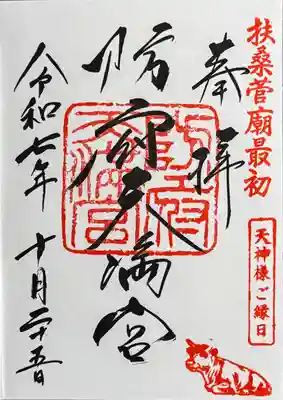 扶桑菅廟最初
天神様ご縁日
奉拝
防府天満宮
防府天満宮
令和七年 十月二十五日